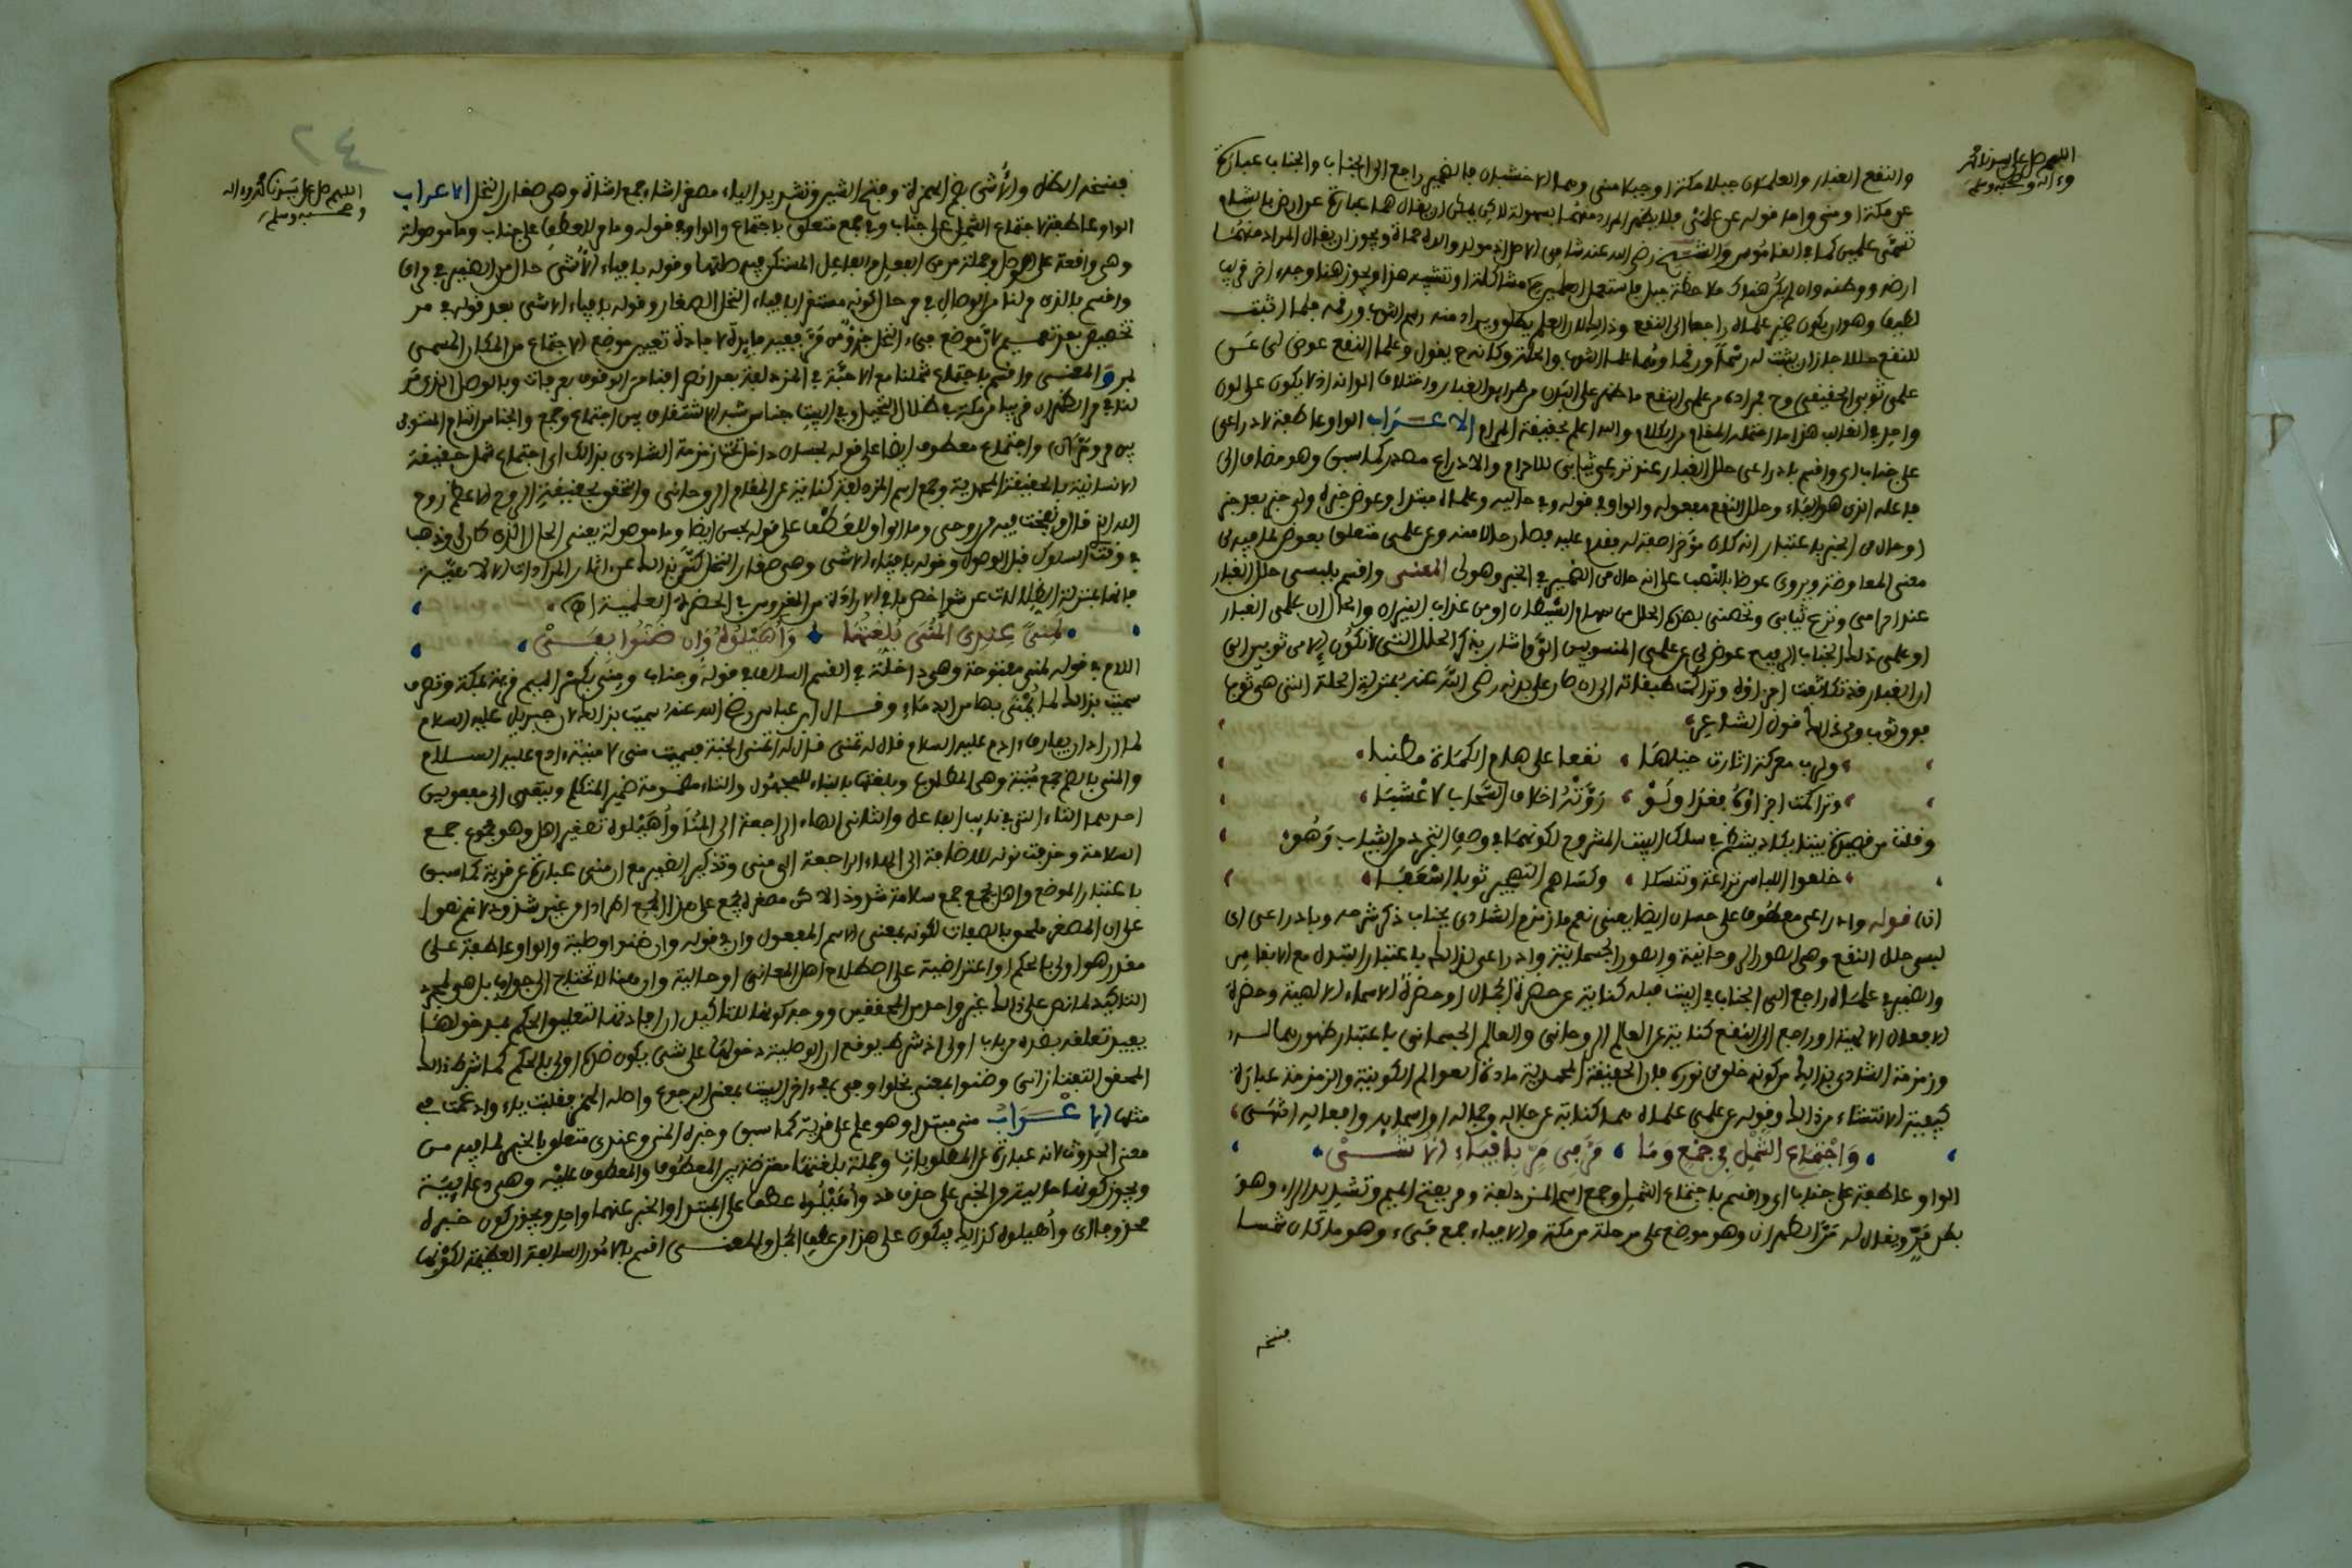 اللهم صل على سيدنا محمد
وءاله وصحبه وسلم
والنقع الغبار والعلمان جبلا مكة او جبلا منى وهما الاخشبان فالضمير راجع الى الجناب والجناب عبارة
عن مكة او منى واما قوله عن علمى فلا يظهر المراد منهما بسهولة لاكن يمكن ان يقال هما عبارة عن ارض بالشام
تسمى علمين كما في القاموس والشيخ رضي الله عنه شامي الاصل اذ مولد والده حماة ويجوز ان يقال المراد منهما
ارضه ووطنه وان لم يكن هناك ملاحظة جبل فاستعمل العلمين مشاكلة او تشبيه هذا ويجوز هنا وجه ءاخر قريب
لطيف وهو ان يكون ضمير علماه راجعا الى النقع وذالك لان العلم يطلق ويراد منه رسم الثوب ورقمه فلما اثبت
للنقع حللا جاز ان يثبت له رسما ورقما وهما علما الثوب والحلة وكانه يقول وعلما النقع عوض لى عن
علمى ثوبي الحقيقي
واحد في الغالب هذا ما احتمله المقام من الكلام والله اعلم بحقيقة المرام الاعراب الواو عاطفة لادراعى
على جناب اى واقسم بادراعى حلل الغبار عند نزعى ثيابى للاحرام والادراع مصدر كما سبق وهو مضاف الى
فاعله الذى هو الياء وحلل النقع مفعوله والواو في قوله حالية وعلماه مبتدا وعوض خبره ولى خبر بعد خبر
او حال من الخبر باعتبار انه كان مؤخرا صفة له فقدم عليه فصار حالا منه وعن علمى متعلق بعوض لما فيه من
معنى المعاوضة ويروى عوضا بالنصب على انه حال من الضمير في الخبر وهو لى المعنى واقسم بلبسى حلل الغبار
عند احرامى ونزع ثيابى وتحصنى بهذه الحلل من سهام الشيطان او من عذاب النيران والحال ان علمى الغبار
او علمى ذلك الجناب الرفيع عوض لى عن علمى المنسوبين الى واشار بذكر الحلل التى لا تكون الا من ثوبين الى
ان الغبار قد تكاثفت اجزاؤه وتراكت طبقاته الى ان صار على بدنه رضي الله عنه بمنزلة الحلة التى هى ثوب
فوق ثوب ومن ذالك قول الشاعر
ولرب معركة اثارت خيلها نقعا على هام الكماة مطنبا
وتراكمت اجزاؤه فغدا ولو روته اخلاف السحاب لاعشبا
وقلت من قصيدة بيتا يكاد ينتظم في سلك البيت المشروح لكونهما في وصف التجرد من الثياب وهو
خلعوا اللباس نزاعة وتنسكا وكساهم التهجير ثوبا اسفعا
اه قوله وادراعى معطوف على حصان ايضا يعنى نعم ما زمزم الشادى بجناب ذكر شرحه وبادراعى اى
لبسى حلل النقع وهى الصور الروحانية والصور الجسمانية وادراعى لذالك باعتبار التبدل مع الانفاس
والضمير في علماه راجع الى الجناب في البيت قبله كناية عن حضرة الجلال او حضرة الاسماء الالهية وحضرة
الافعال الالهية او راجع الى النقع كناية عن العالم الروحانى والعالم الجسمانى باعتبار ظهورهما له
وزمزمة الشادى بذالك من كونه خلق من نوره فان الحقيقة المحمدية مادة العوالم الكونية والزمزمة عبارة
كيفية الانتشاء من ذالك وقوله عن علمى علماه هما كناية عن جلاله وجماله او اسمائه وافعاله انتهى
واجتماع الشمل في جمع وما مر في مر بافياء الاشى
الواو عاطفة على جناب اى واقسم باجتماع الشمل وجمع اسم المزدلفة ومر بفتح الميم وتشديد الراء وهو
بطن مر ويقال له مر الظهران وهو موضع على مرحلة من مكة والافياء جمع فىء وهو ما كان شمسا
فينسخه
٢٤
اللهم صل على سيدنا محمد وءاله
وصحبه وسلم
فينسخه الظل والاشى بضم الهمزة وفتح الشين وتشديد الياء مصغر اشاء جمع اشاة وهى صغار النخل الاعراب
الواو عاطفة لاجتماع الشمل على جناب وفي جمع متعلق باجتماع والواو في قوله وما مر للعطف على جناب وما موصولة
وهى واقعة على الوصل وجملة مر من الفعل والفاعل المستكن فيه صلتها وقوله بافياء الاشى حال من الضمير في مر اى
واقسم بالذى مر لنا من الوصال في مر حال كونه مستقرا بافياء النخل الصغار وقوله بافياء الاشى بعد قوله في مر
تخصيص بعد تعميم لان موضع فىء النخل جزء من مر ففيه فايدة لافادة تعيين موضع الاجتماع من المكان المسمى
بمر والمعنى واقسم باجتماع شملنا مع الاحبة في المزدلفة بعد اتمام اقامة الوقوف بعرفات وبالوصل الذى مر
لنا في مر الظهران قريبا من مكة في ظلال النخيل وفي البيت جناس شبه الاشتقاق بين اجتماع وجمع والجناس التام المستوفى
بين مر ومر اه واجتماع معطوف ايضا على قوله بحصان داخل تحت زمزمة الشادى بذالك اى اجتماع شمل حقيقة
الانسانية بالحقيقة المحمدية وجمع اسم المزدلفة كناية عن المقام الروحانى والتحقق بحقيقة الروح الاعظم روح
الله الذى قال ونفخت فيه من روحى وما الواو للعطف على قوله بحى ايضا وما موصولة يعنى الحال الذى كان لى وذهب
في وقت السلوك قبل الوصول وقوله بافياء الاشى وهى صغار النخل كنى بذالك عن اثار المرادات الالاهية
فانها بمنزلة الظلالات عن شواخص ما في الارادة من المغروس في الحضرة العلمية اه
لمنى عندى المنى بلغتها واهيلوه وان ضنوا بفى
اللام في قوله لمنى مفتوحة وهى داخلة في القسم السالف في قوله وجناب ومنى بكسر الميم قرية بمكة وتصرف
سميت بذالك لما يمنى بها من الدماء وقال ابن عباس رضي الله عنه سميت بذالك لان جبريل عليه السلام
لما اراد ان يفارق ءادم عليه السلام قال له تمنى قال له اتمنى الجنة فسميت منى لامنية ءادم عليه السلام
والمنى بالضم جمع منية وهى المطلوب وبلغتها بالبناء للمجهول والتاء مضمومة ضمير المتكلم ويتعدى الى مفعولين
احدهما التاء التى في نايب الفاعل والثانى الهاء الراجعة الى المنا واهيلوه تصغير اهل وهو مجموع جمع
السلامة وحذفت نونه للاضافة الى الهاء الراجعة الى منى وتذكير الضمير مع ان منى عبارة عن قرية كما سبق
باعتبار الموضع واهل يجمع جمع سلامة شذوذا لاكن مصغره يجمع على هذا الجمع اطرادا من غير شذوذ لانهم نصوا
على ان المصغر ملحق بالصفات لكونه بمعنى الاسم المفعول وان في قوله وان ضنوا وصلية والواو عاطفة على
مقدر هو اولى بالحكم او اعتراضية على اصطلاح اهل المعانى او حالية وان هنا لا تحتاج الى جواب بل هى لمجرد
التاكيد لما نص على ذالك غير واحد من المحققين ووجه كونها للتاكيد ان افادتها لتعليق الحكم بمدخولها
يفيد تعلقه بضده من باب اولى اذ شرط موقع ان الوصلية دخولها على شىء يكون ضده اولى بالحكم كما شرط ذالك
المحقق التفتازانى وضنوا بمعنى بخلوا وفى بفىء اخر البيت بمعنى الرجوع واصله الهمز فقلبت ياء وادغمت في
مثلها الاعراب منى مبتدا وهو علم على قرية كما سبق وخبره المنى وعندى متعلق بالخبر لما فيه من
معنى الحدوث لانه عبارة عن المطلوبات وجملة بلغتها معترضة بين المعطوف والمعطوف عليه وهى دعائية
ويجوز كونها حالية من الخبر على حذف قد واهيلوه عطف على المبتدا والخبر عنهما واحد ويجوز كون خبره
محذوفا اى واهيلوه كذالك فيكون على هذا من عطف الجمل والمعنى اقسم بالامور السابقة العظيمة لكونها